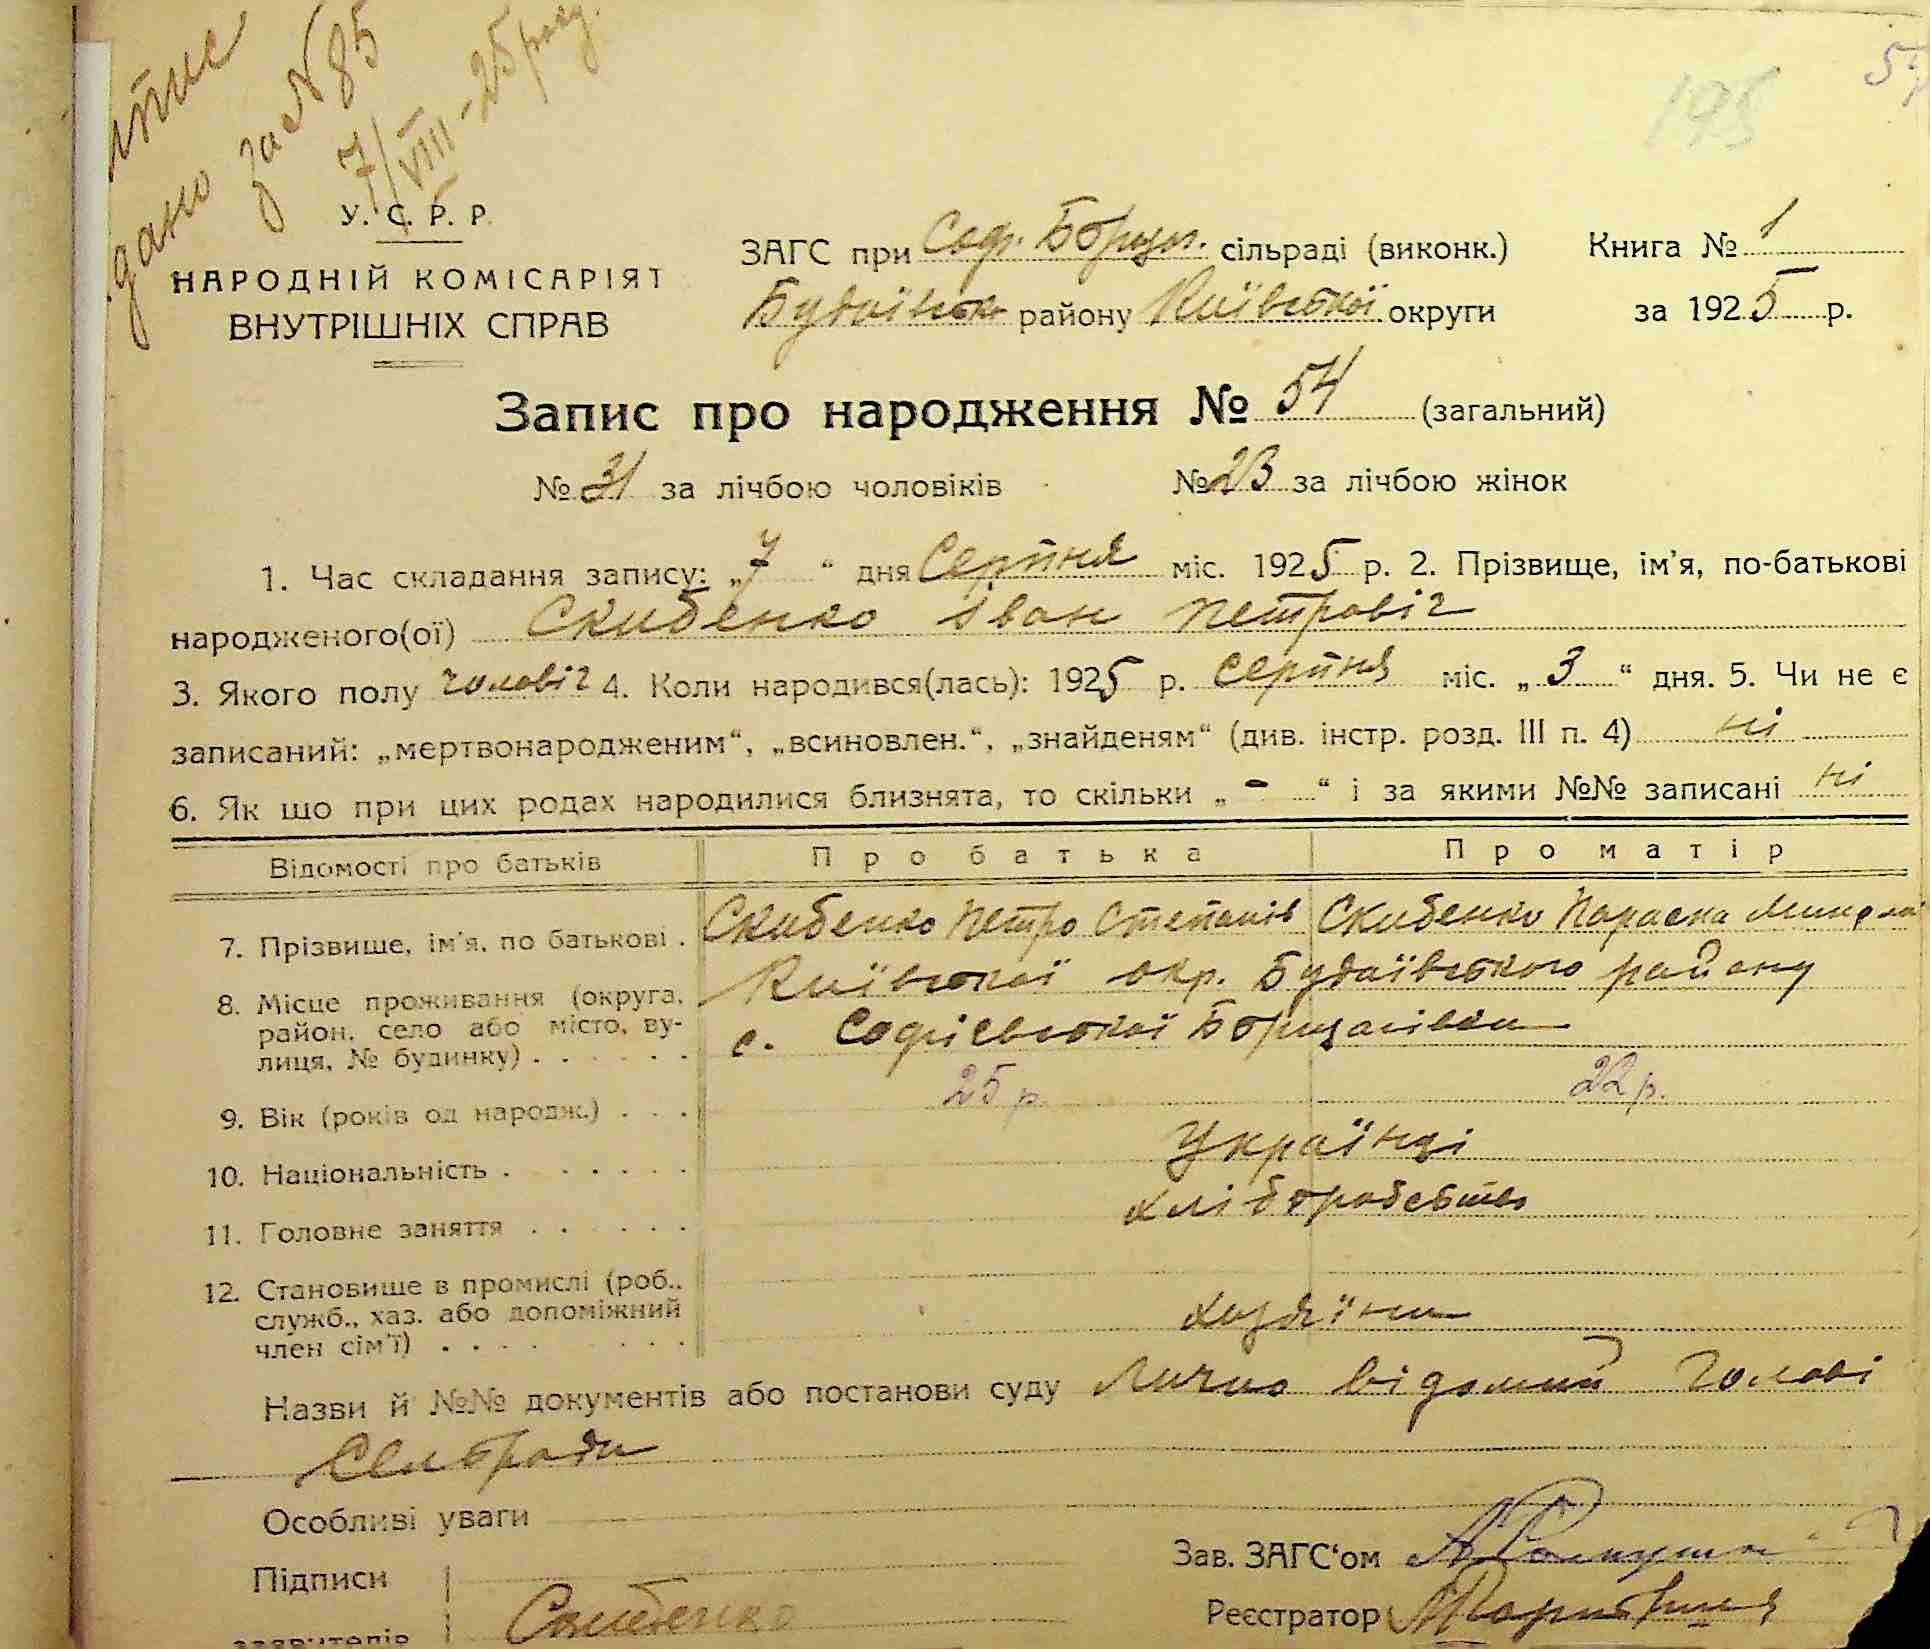 дано за № 85
7/VIII-25 року
195
У. С. Р. Р.
НАРОДНІЙ КОМІСАРІЯТ
ВНУТРІШНІХ СПРАВ
ЗАГС при Соф. Борщаг. сільраді (виконк.) Книга № 1
Будаївськ району Київської округи за 1925 р.
Запис про народження № 54 (загальний)
№ 31 за лічбою чоловіків № 23 за лічбою жінок
1. Час складання запису: „7“ дня Серпня міс. 1925 р. 2. Прізвище, ім'я, по-батькові
народженого(ої) Скибенко Іван Петровіч
3. Якого полу чоловіч 4. Коли народився(лась): 1925 р. Серпня міс. „3“ дня. 5. Чи не є
записаний: „мертвонародженим“, „всиновлен.“, „знайденям“ (див. інстр. розд. III п. 4) ні
6. Як що при цих родах народилися близнята, то скільки „-“ і за якими №№ записані ні
Відомості про батьків Про батька Про матір
7. Прізвише, ім'я, по батькові . Скибенко Петро Степанів Скибенко Параска
8. Місце проживання (округа, район, село або місто, ву-
лиця, № будинку) . . . . . . Київської окр. Будаївського району
с. Софієвської Борщагівки
9. Вік (років од народж.) . . . 25 р. 22 р.
10. Національність . . . . . . . Українці
11. Головне заняття . . . . . . хліборобство
12. Становише в промислі (роб.,
служб., хаз. або допоміжний
член сім'ї) . . . . . . . . . хозяїни
Назви й №№ документів або постанови суду Лично відомий Голові
Сельради
Особливі уваги
Підписи
заявителів Скибенко
Зав. ЗАГС'ом
Реєстратор